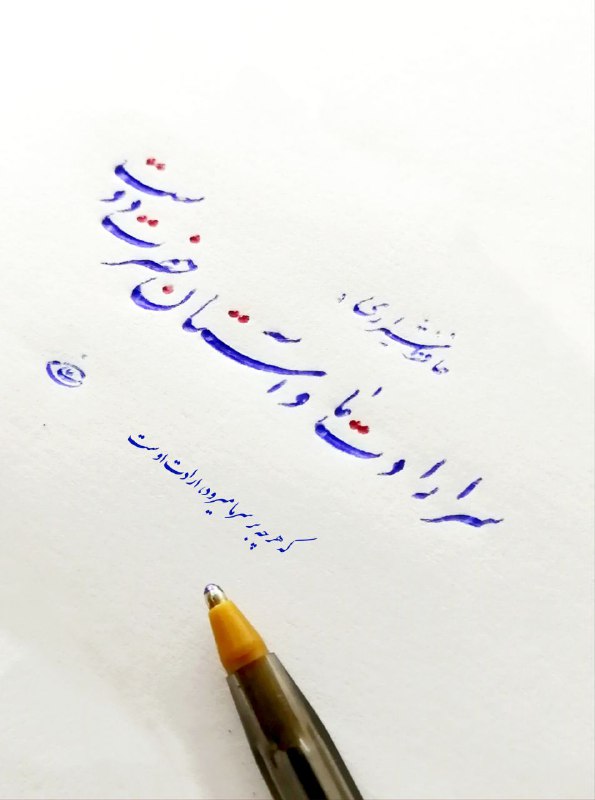 حافظ شیرازی
سر ارادت ما و آستان حضرت دوست
که هر چه بر سر ما میرود ارادت اوست